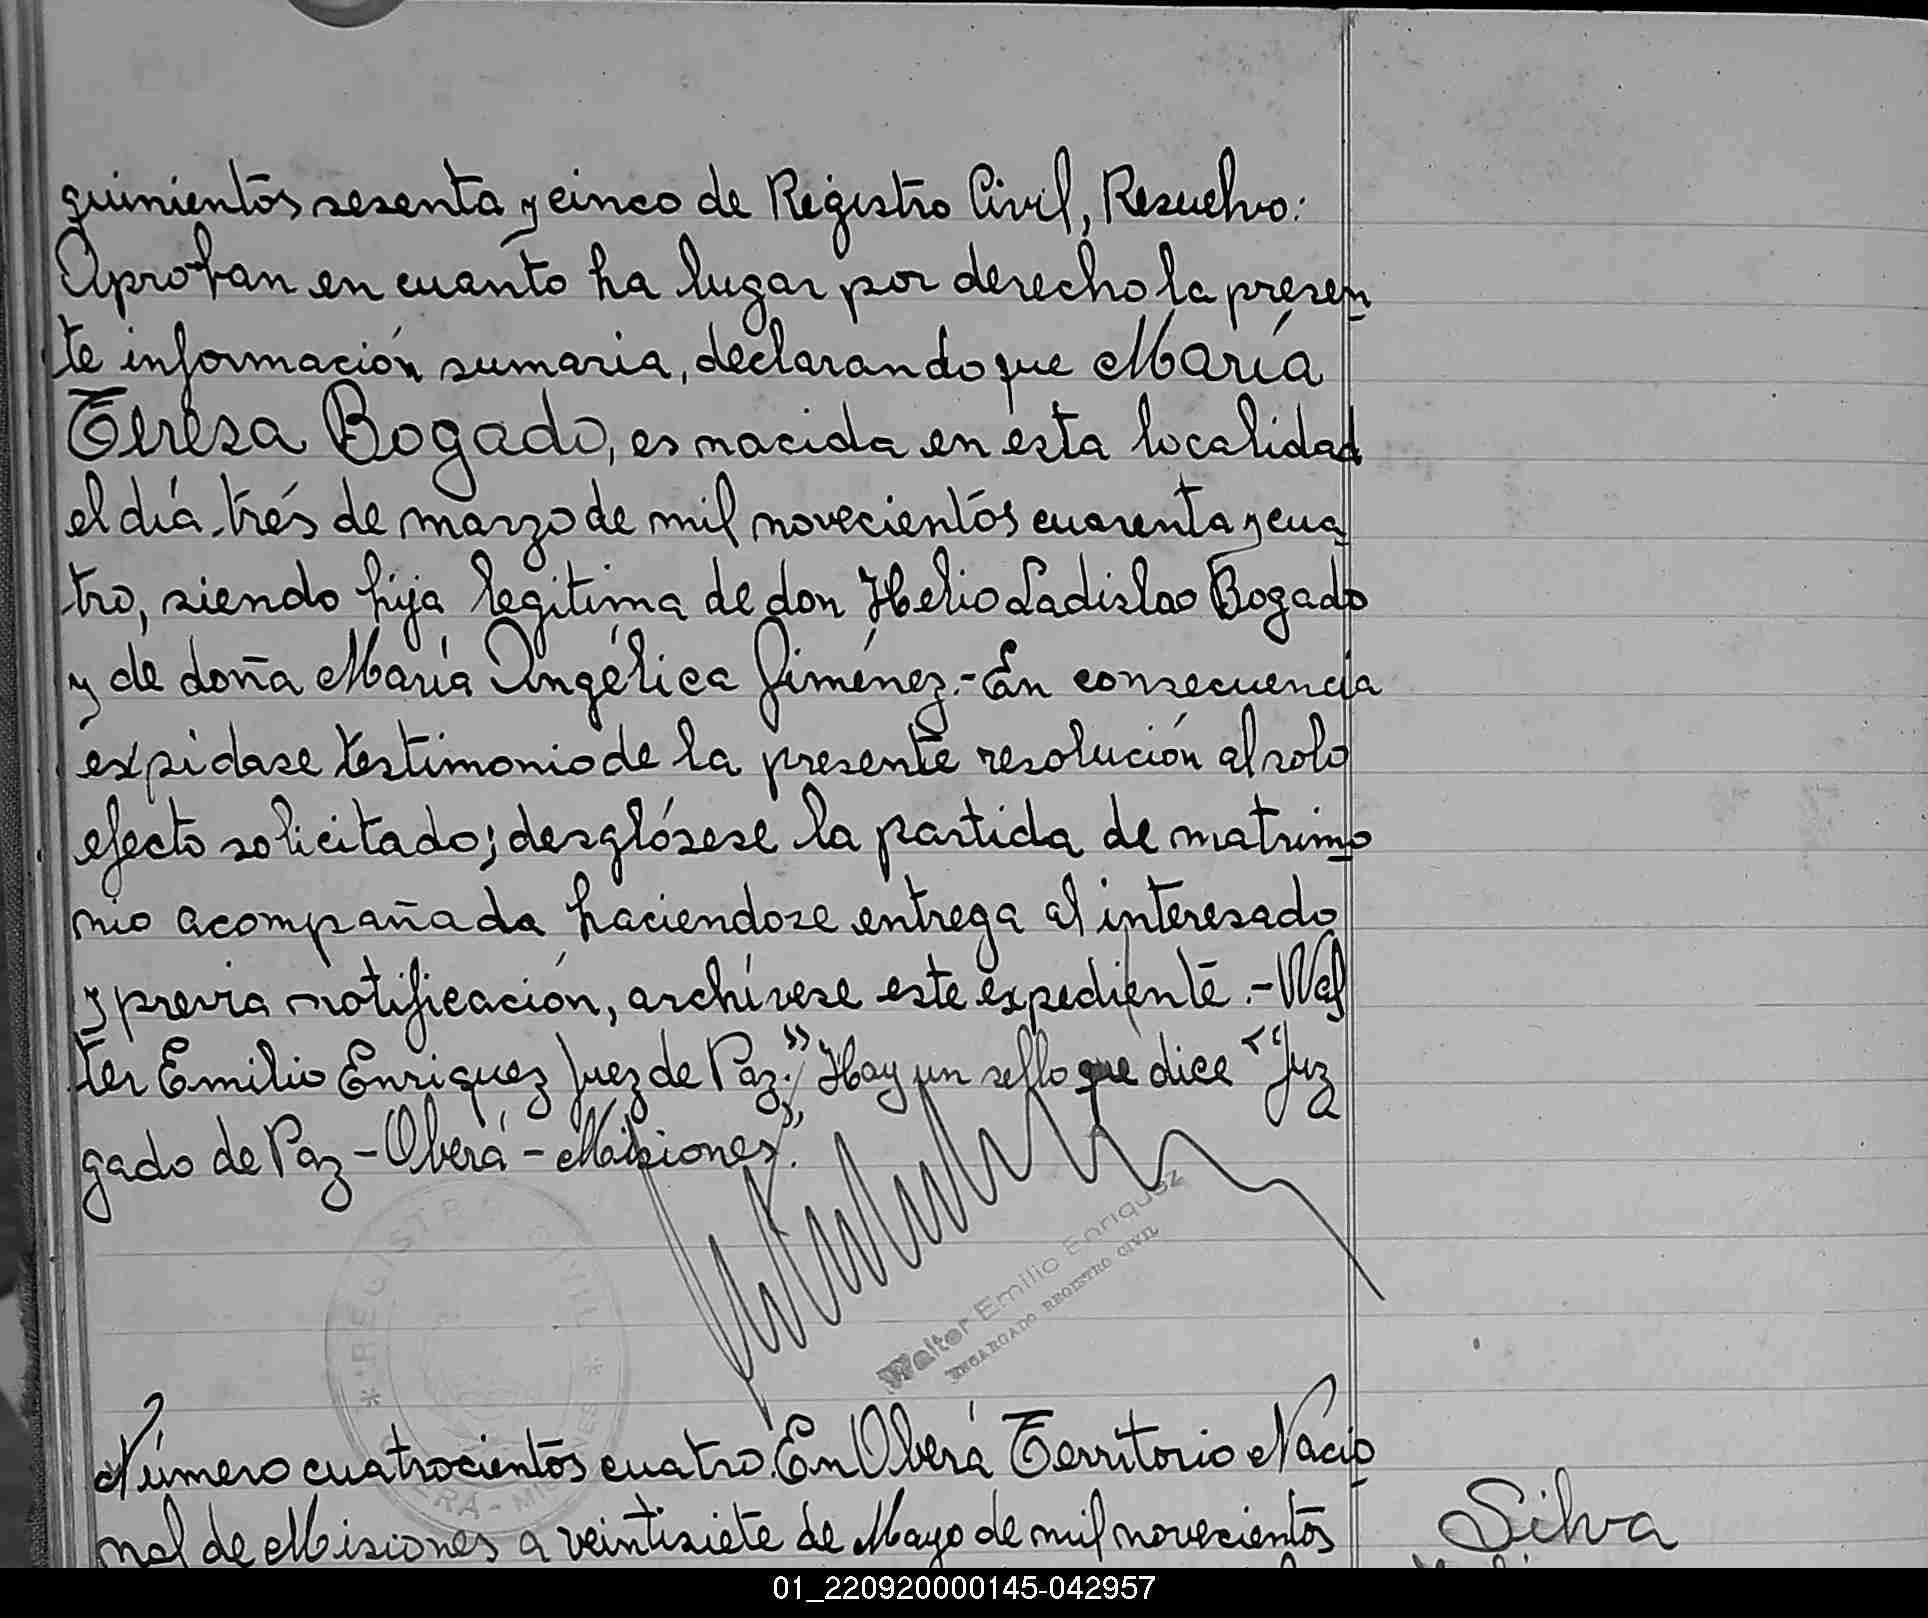 quinientos sesenta y cinco de Registro Civil, Resuelvo:
Aprobar en cuanto ha lugar por derecho la presen
te información sumaria, declarando que María
Teresa Bogado, es nacida en esta localidad
el día tres de marzo de mil novecientos cuarenta y cua
tro, siendo hija legitima de don Helio Ladislao Bogado
y de doña María Angélica Jiménez.- En consecuencia
expidase testimonio de la presente resolución al solo
efecto solicitado; desglósese la partida de matrimo
nio acompañada haciendose entrega al interesado
y previa notificación, archívese este expediente.- Wal
ter Emilio Enriquez Juez de Paz." Hay un sello que dice "Juz
gado de Paz - Oberá - Misiones".
REGISTRO CIVIL
OBERÁ - MISIONES
Walter Emilio Enriquez
ENCARGADO REGISTRO CIVIL
Número cuatrocientos cuatro. En Oberá Territorio Nacio
nal de Misiones a veintisiete de Mayo de mil novecientos
Silva
01_220920000145-042957